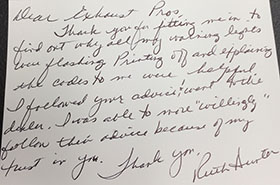 Dear Exhaust Pros,
Thank you for fitting me in to
find out why all my warning lights
were flashing. Printing off and explaining
the codes to me were helpful.
I followed your advice & went to the
dealer. I was able to more "willingly"
follow their advice because of my
trust in you. Thank you.
Ruth Hunter